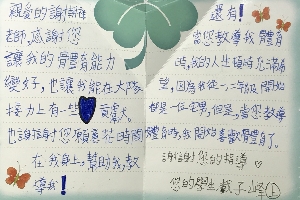 親愛的謝
老師,感謝您
讓我的體育能力
變好,也讓我能在大隊
接力上有一些貢獻。
也謝謝您願意花時間
在我身上,幫助我,教
導我!
還有!
當您教導我體育
時,我的人生頓時充滿希
望,因為我從一、二年級開始
都是一位宅男,但是,當您教導
體育時,我開始喜歡體育了。
謝謝您的指導
您的學生 戴子 上